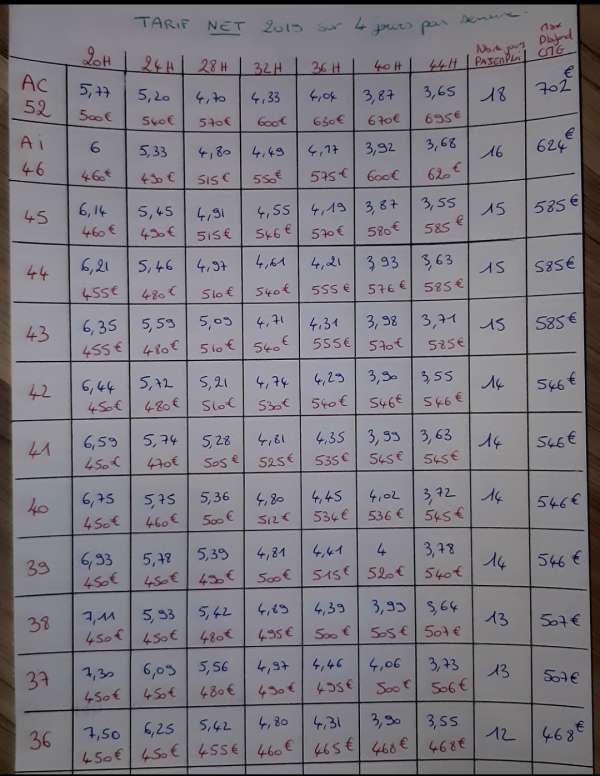 TARIF NET 2019 sur 4 jours par semaine.
20H 24H 28H 32H 36H 40H 44H Nbre jours PAJEMPLOI Max Plafond CMG
AC 5,77 5,20 4,70 4,33 4,04 3,87 3,65 18 702€
52 500€ 540€ 570€ 600€ 630€ 670€ 695€
Ai 6 5,33 4,80 4,49 4,17 3,92 3,68 16 624€
46 460€ 490€ 515€ 550€ 575€ 600€ 620€
45 6,14 5,45 4,91 4,55 4,19 3,87 3,55 15 585€
460€ 490€ 515€ 546€ 570€ 580€ 585€
44 6,21 5,46 4,97 4,61 4,21 3,93 3,63 15 585€
455€ 480€ 510€ 540€ 555€ 576€ 585€
43 6,35 5,59 5,09 4,71 4,31 3,98 3,71 15 585€
455€ 480€ 510€ 540€ 555€ 570€ 585€
42 6,44 5,72 5,21 4,74 4,29 3,90 3,55 14 546€
450€ 480€ 510€ 530€ 540€ 546€ 546€
41 6,59 5,74 5,28 4,81 4,35 3,99 3,63 14 546€
450€ 470€ 505€ 525€ 535€ 545€ 545€
40 6,75 5,75 5,36 4,80 4,45 4,02 3,72 14 546€
450€ 460€ 500€ 512€ 534€ 536€ 545€
39 6,93 5,78 5,39 4,81 4,41 4 3,78 14 546€
450€ 450€ 490€ 500€ 515€ 520€ 540€
38 7,11 5,93 5,42 4,89 4,39 3,99 3,64 13 507€
450€ 450€ 480€ 495€ 500€ 505€ 507€
37 7,30 6,09 5,56 4,97 4,46 4,06 3,73 13 507€
450€ 450€ 480€ 490€ 495€ 500€ 506€
36 7,50 6,25 5,42 4,80 4,31 3,90 3,55 12 468€
450€ 450€ 455€ 460€ 465€ 468€ 468€